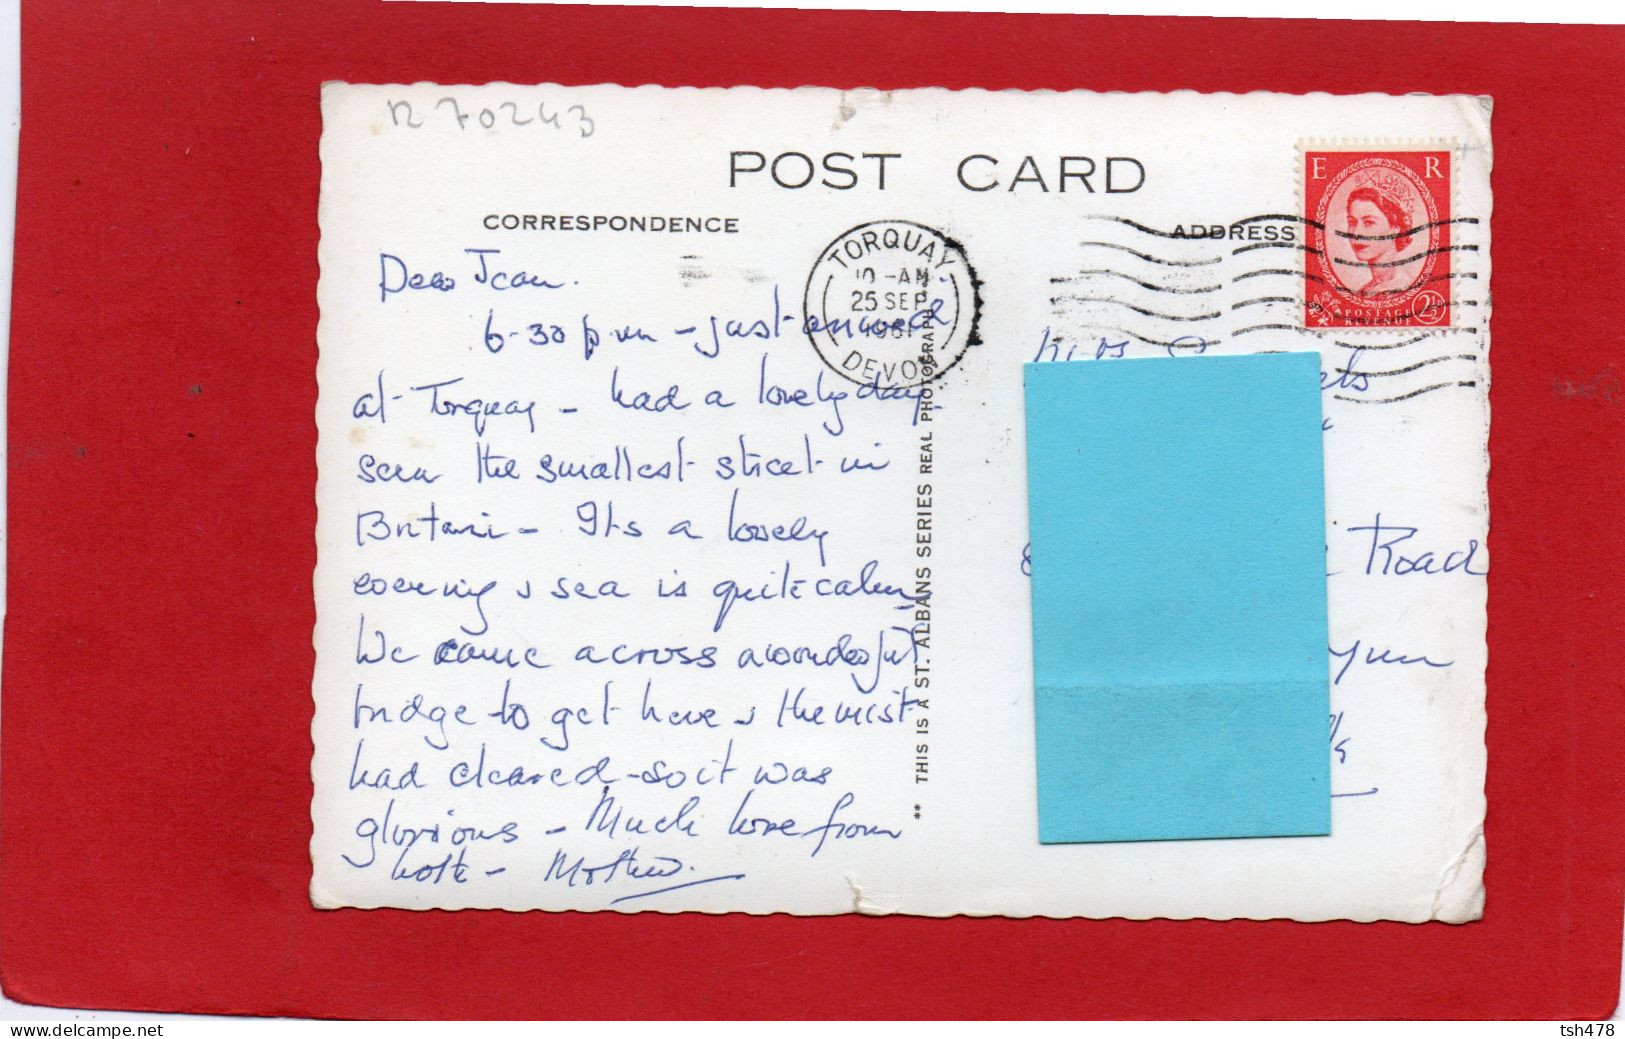 R 70243
POST CARD
CORRESPONDENCE
ADDRESS
E R
POSTAGE
REVENUE
2½
TORQUAY
10 - AM
25 SEP
1961
DEVON
Dear Jean.
6-30 p m - just arrived
at Torquay - had a lovely day
seen the smallest street in
Britain - Its a lovely
evening & sea is quite calm
We came across a wonderful
bridge to get here & the mist
had cleared - so it was
glorious - Much love from
both - Mother.
** THIS IS A ST. ALBANS SERIES REAL PHOTOGRAPH
Mrs
Road
Lynn
www.delcampe.net
tsh478